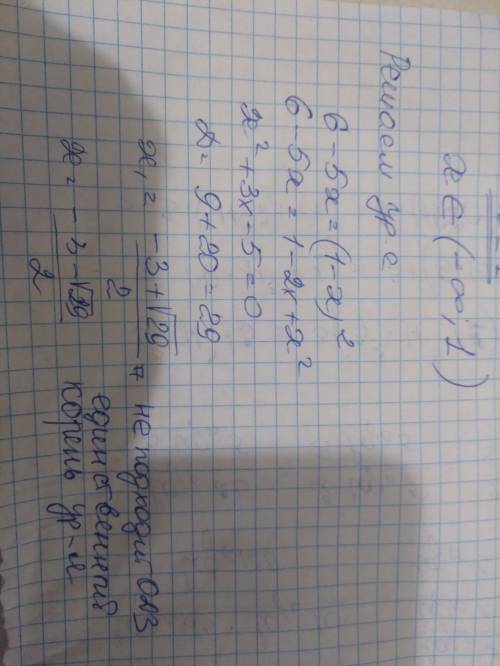 x ∈ (-∞; 1)
Решаем ур-е
6 - 5x = (1-x)²
6 - 5x = 1 - 2x + x²
x² + 3x - 5 = 0
D = 9 + 20 = 29
x₁ = -3 + √29 / 2 не подходит ОДЗ
x = -3 - √29 / 2 единственный
корень ур-я